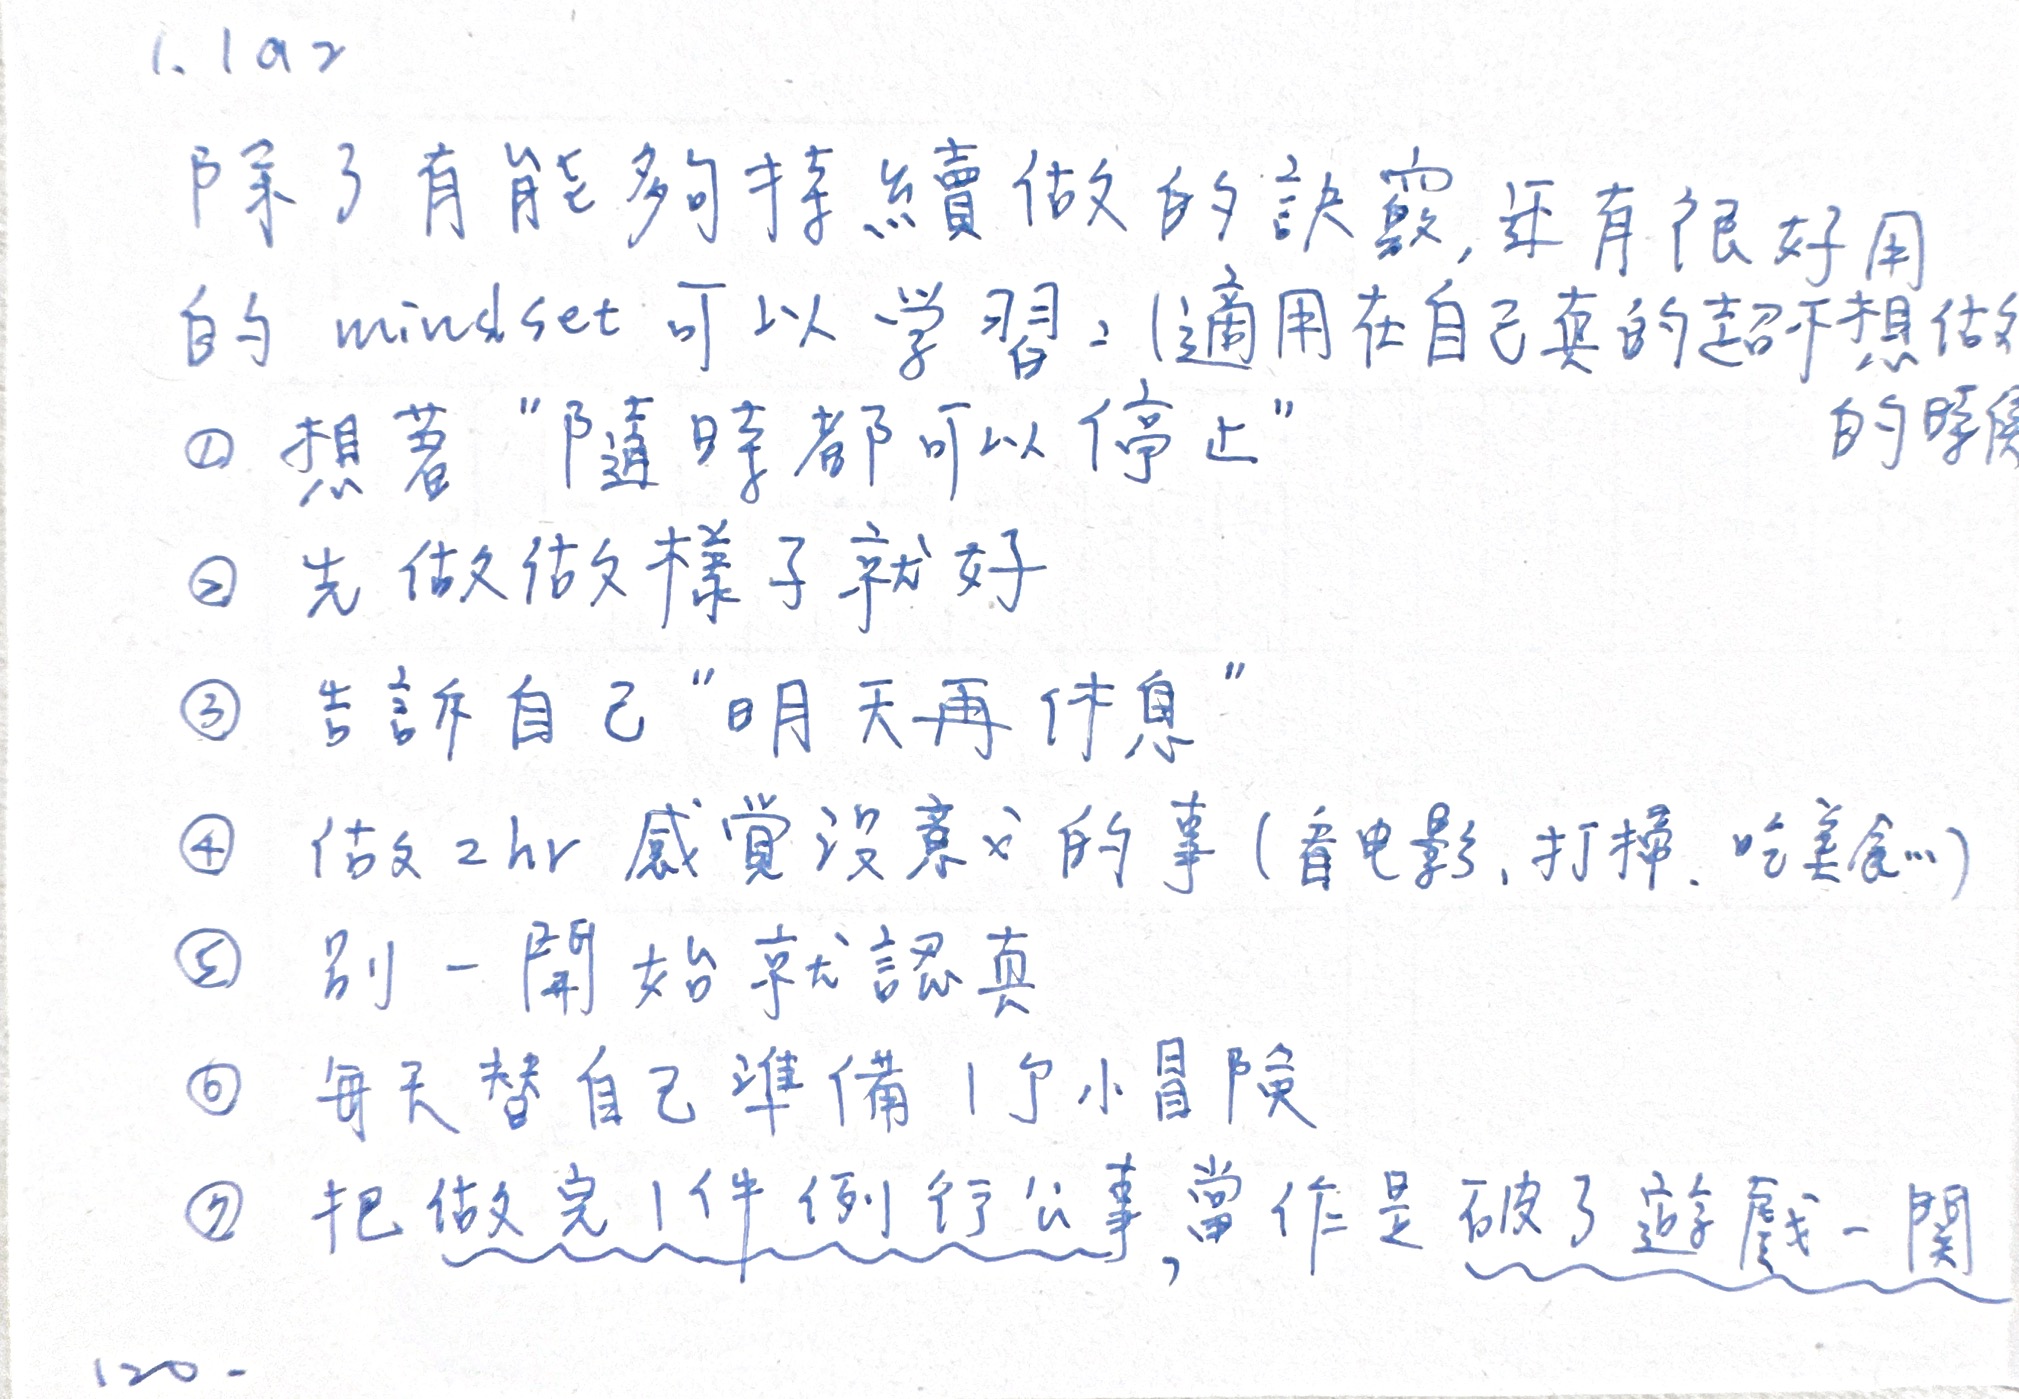 1.1a2
除了有能夠持續做的訣竅,还有很好用
的 mindset 可以学習:(適用在自己真的超不想做
的時候
① 想著"隨時都可以停止"
② 先做做樣子就好
③ 告訴自己"明天再休息"
④ 做2hr 感覚沒意义的事(看电影、打掃、吃美食…)
⑤ 別一開始就認真
⑥ 每天替自己準備1个小冒険
⑦ 把做完1件例行公事,當作是破了遊戲一関
120-